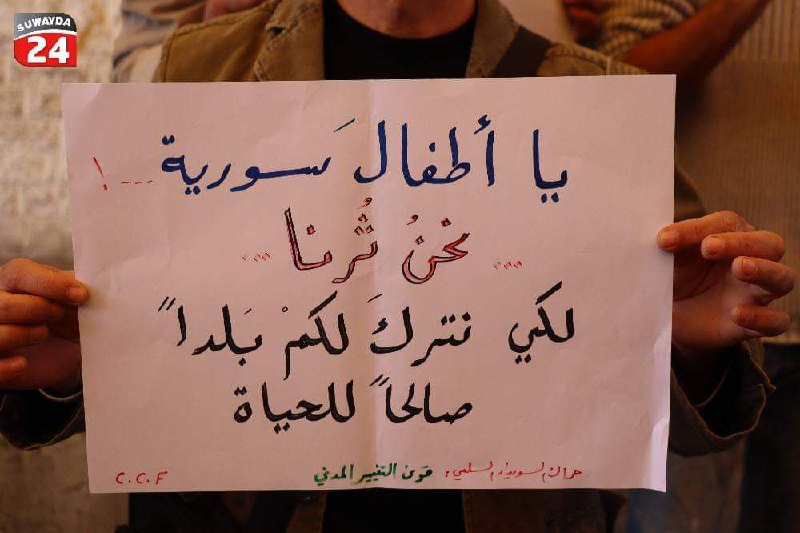 SUWAYDA
24
يا أطفال سَورية ...!
... نحنُ ثُرنا ...
لكي نتركَ لكمْ بَلداً
صالحاً للحياة
السويداء السلمي، قوى التغيير المدني
C.C.F